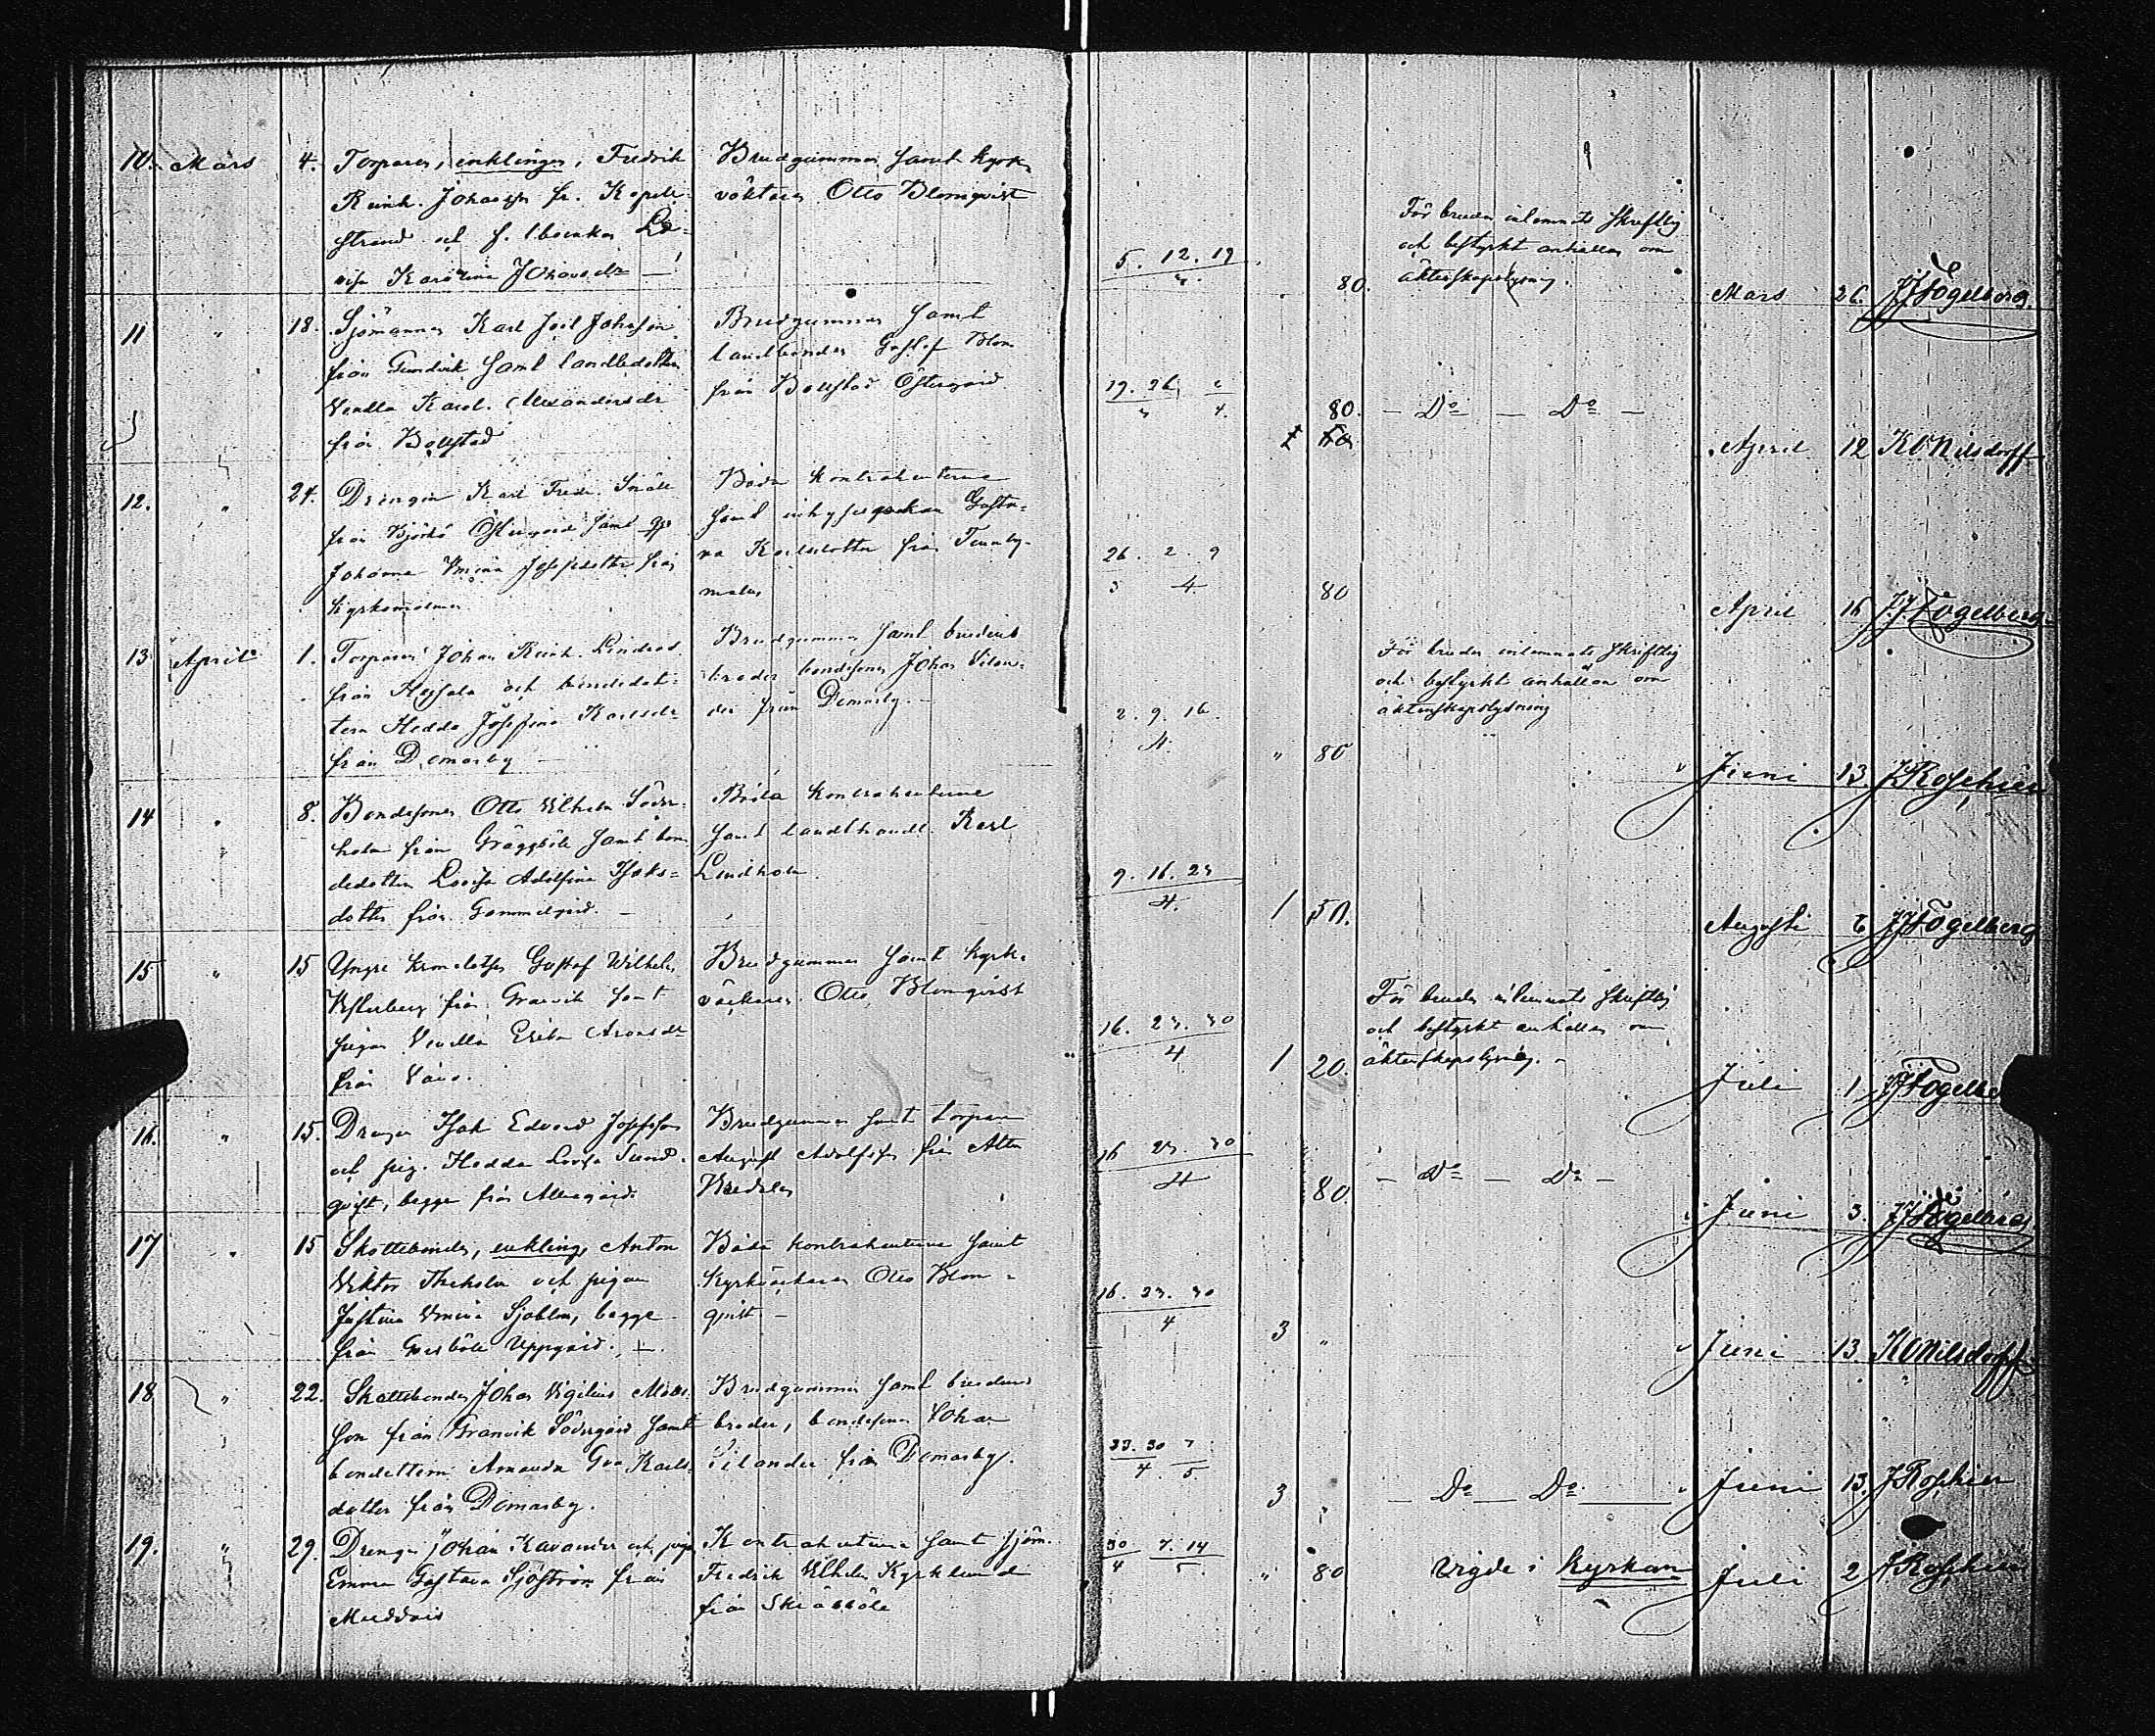 10. Mars 4. Torparen, enklingen, Fredrik
Reinh. Johansson fr. Kapell-
strand och f.
visa Karolina Johansdr —
Brudgummen samt kyrk-
väktaren Otto Blomqvist
5. 12. 19
80.
För bruden inlemnats skriftlig
och bestyrkt anhållan om
äktenskapslysning.
Mars 26. JJFogelberg
11 " 18. Sjömannen Karl Joel Johansson
från Gundvik samt landbodottern
Vendla Karol. Alexandersdr
från Bollstad
Brudgummen samt
landbonden Gustaf Blom
från Bollstad Östergård
19. 26
4.
80. — Do — Do —
April 12 KONilsdorff
12. " 24. Drängen Karl Fredr. Snäll
från Björkö Östergård samt
Johanna Vmina Josefsdotter från
Kyrksmalmen
Båda kontrahenterna
samt Gusta-
va Karlsdotter från Finnby-
malm
26. 2. 9
3 4
80
April 16 JJFogelberg
13 April 1. Torparen Johan Reinh. Lindros
från Hessala och bondedot-
tern Hedda Josefina Karlsdr
från Domarby —
Brudgummen samt brudens
broder bondesonen Johan Silan-
der från Domarby. —
2. 9. 16.
4.
" 80
För bruden inlemnats skriftlig
och bestyrkt anhållan om
äktenskapslysning
" Juni 13. JRoschier
14 " 8. Bondesonen Otto Vilhelm Söder-
holm från Gräggböle samt bon-
dedottern Lovisa Adolfina Isaks-
dotter från Gammelgård. —
Båda kontrahenterna
samt landthandl. Karl
Lindholm
9. 16. 23
4.
1 50.
Augusti 6 JJFogelberg
15 " 15 Yngre Gustaf Vilhelm
Vesterberg från Granvik samt
pigan Vendla Erika Aronsdr
från Vånö.
Brudgummen samt kyrk-
väktaren Otto Blomqvist
16. 23. 30
4
1 20.
För bruden inlemnats skriftlig
och bestyrkt anhållan om
äktenskapslysning. —
Juli 1 JJFogelbe
16. " 15. Drängen Isak Edvard Josefsson
och pig. Hedda Lovisa Sund-
qvist, begge från Allengård.
Brudgummen samt torparen
August Adolfsson från Attu
16 23. 30
4
80. — Do — Do —
" Juni 3. JJFogelberg
17 " 15 Skattebonden, enkling, Anton
Viktor Thesholm och pigan
Justina Vmina Sjöblom, begge
från Gersböle Uppgård. —
Båda kontrahenterna samt
Kyrkväktaren Otto Blom-
qvist. —
16. 23. 30
4
3 "
" Juni 13. KONilsdorff
18 " 22. Skattebonden Johan Vigilius Mats-
son från Granvik Södergård samt
bondedottern Amanda Eva Karls-
dotter från Domarby.
Brudgummen samt brudens
broder, bondesonen Johan
Silander från Domarby.
23. 30 7
4. 5
3 "
— Do — Do — " Juni 13. JRoschier
19. " 29. Drängen Johan Kavander och pigan
Emma Gustava Sjöström från
Muddais
Kontrahenterna samt sjöm.
Fredrik Vilhelm Kyrklund
från Skräbböle
30 7. 14
4 5.
" 80 Vigde i kyrkan Juli 2 JRoschier